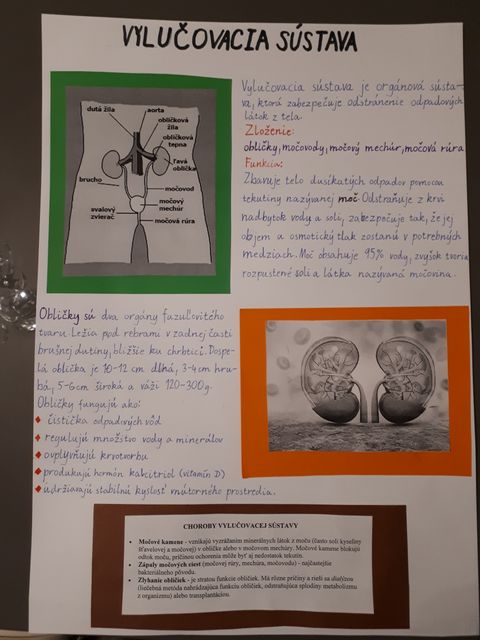 VYLUČOVACIA SÚSTAVA
dutá žila
aorta
obličková
žila
obličková
tepna
ľavá
oblička
brucho
močovod
močový
mechúr
svalový
zvierač
močová rúra
Vylučovacia sústava je orgánová sústa-
va, ktorá zabezpečuje odstránenie odpadových
látok z tela.
Zloženie:
obličky, močovody, močový mechúr, močová rúra
Funkcia:
Zbavuje telo dusíkatých odpadov pomocou
tekutiny nazývanej moč. Odstraňuje z krvi
nadbytok vody a soli, zabezpečuje tak, že jej
objem a osmotický tlak zostanú v potrebných
medziach. Moč obsahuje 95% vody, zvyšok tvoria
rozpustené soli a látka nazývaná močovina.
Obličky sú dva orgány fazuľovitého
tvaru. Ležia pod rebrami v zadnej časti
brušnej dutiny, bližšie ku chrbtici. Dospe-
lá oblička je 10-12 cm dlhá, 3-4cm hru-
bá, 5-6cm široká a váži 120-300g.
Obličky fungujú ako:
♦ čistička odpadových vôd
♦ regulujú množstvo vody a minerálov
♦ ovplyvňujú krvotvorbu
♦ produkujú hormón kalcitriol (vitamín D)
♦ udržiavajú stabilnú kyslosť vnútorného prostredia.
CHOROBY VYLUČOVACEJ SÚSTAVY
• Močové kamene - vznikajú vyzrážaním minerálnych látok z moču (často soli kyseliny
šťaveľovej a močovej) v obličke alebo v močovom mechúry. Močové kamene blokujú
odtok moču, príčinou ochorenia môže byť aj nedostatok tekutín.
• Zápaly močových ciest (močovej rúry, mechúra, močovodu) - najčastejšie
bakteriálneho pôvodu.
• Zlyhanie obličiek - je stratou funkcie obličiek. Má rôzne príčiny a rieši sa dialýzou
(liečebná metóda nahrádzajúca funkciu obličiek, odstraňujúca splodiny metabolizmu
z organizmu) alebo transplantáciou.